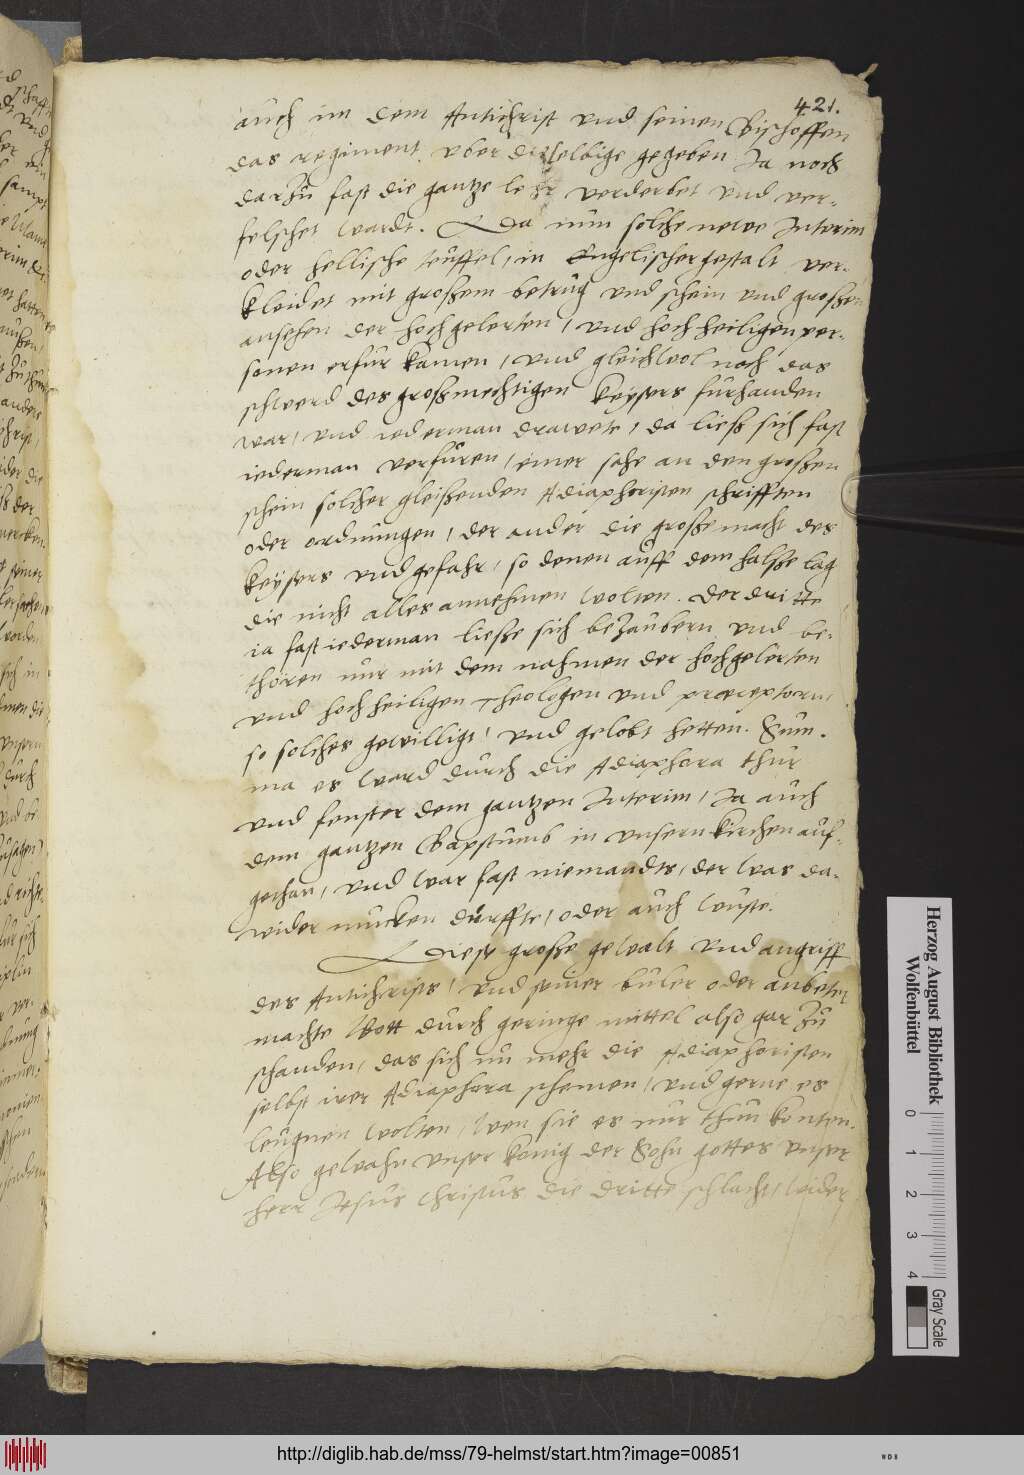 421.
auch im dem Antichrist vnd seinen Bischoffen
das regiment vber dieselbige gegeben Ja noch
darzu fast die gantze lehr verderbet vnd ver-
felschet wardt. Da nun solche newe Interim
oder hellische teuffel, in Engelischer gestalt ver-
kleidet mit großem betrug vnd schein vnd großen
ansehen der hochgelerten, vnd hochheiligen per-
sonen erfür kamen, vnd gleichwol noch das
schwerd des großmechtigen Keysers fürhanden
war, vnd iederman drawete, da ließ sich fast
iederman verfüren, einer sahe an den großen
schein solcher gleißenden Adiaphoristen schrifften
oder ordnungen, der ander die große macht des
Keysers vnd gefahr, so denen auff dem halße lag
die nicht alles annehmen wolten. Der dritte
ia fast iederman ließe sich bezaubern vnd be-
thören nur mit dem nahmen der hochgelerten
vnd hochheiligen Theologen vnd præceptorn,
so solches gewilligt, vnd gelobt hetten. Sum-
ma es ward durch die Adiaphora thür
vnd fenster dem gantzen Interim, Ja auch
dem gantzen Bapstumb in vnsern kirchen auf-
gethan, vnd war fast niemandts, der was da-
wider mucken dürffte, oder auch wuste.
Diese große gewalt vnd angriff
des Antichrists, vnd seiner buler oder anbeter
machte Gott durch geringe mittel also gar zu
schanden, das sich nu mehr die Adiaphoristen
selbst irer Adiaphora schemen, vnd gerne es
leugnen wolten, wen sie es nur thun konten.
Also gewahn vnser könig der Sohn gottes vnser
herr Jesus Christus die dritte schlacht, wider
Herzog August Bibliothek
Wolfenbüttel
0 1 2 3 4
Gray Scale
http://diglib.hab.de/mss/79-helmst/start.htm?image=00851